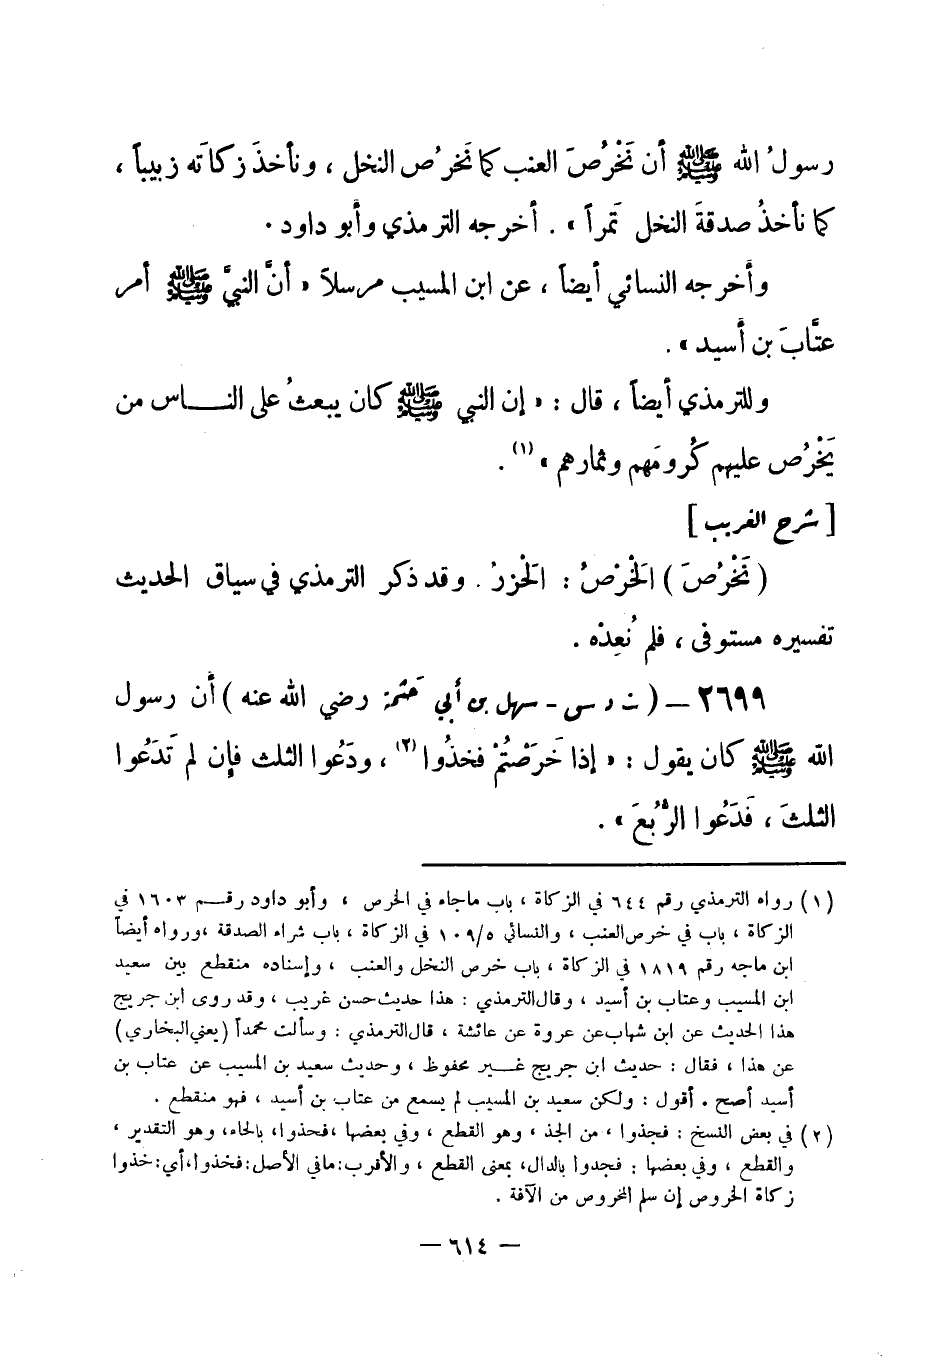 رسولُ الله ﷺ أن نَخْرُصَ العنب كما نَخرُص النخل ، ونأخذَ زكاتَه زبيباً ،
كما نأخذُ صدقةَ النخل تَمراً » . أخرجه الترمذي وأبو داود .
وأخرجه النسائي أيضاً ، عن ابن المسيب مرسلاً « أنَّ النبيَّ ﷺ أمر
عتَّابَ بن أَسيد » .
وللترمذي أيضاً ، قال : « إن النبي ﷺ كان يبعثُ على النـــاس من
يَخْرُص عليهم كُرومَهم وثمارهم » (١) .
[ شرح الغريب ]
( نَخْرُصَ ) الخَرْصُ : الحَزرُ . وقد ذكر الترمذي في سياق الحديث
تفسيره مستوفى ، فلم نُعِدْه .
٢٦٩٩ – ( ت د س - سهل بن أبي حَثمة رضي الله عنه ) أن رسول
الله ﷺ كان يقول : « إذا خَرَصْتُمْ فخذُوا (٢) ، ودَعُوا الثلث فإن لم تَدَعُوا
الثلثَ ، فَدَعُوا الرُّبُعَ » .
(١) رواه الترمذي رقم ٦٤٤ في الزكاة ، باب ماجاء في الخرص ، وأبو داود رقـــم ١٦٠٣ في
الزكاة ، باب في خرص العنب ، والنسائي ١٠٩/٥ في الزكاة ، باب شراء الصدقة ،ورواه أيضاً
ابن ماجه رقم ١٨١٩ في الزكاة ، باب خرص النخل والعنب ، وإسناده منقطع بين سعيد
ابن المسيب وعتاب بن أسيد ، وقال الترمذي : هذا حديث حسن غريب ، وقد روى ابن جريج
هذا الحديث عن ابن شهاب عن عروة عن عائشة ، قال الترمذي : وسألت محمداً (يعني البخاري)
عن هذا ، فقال : حديث ابن جريج غـــير محفوظ ، وحديث سعيد بن المسيب عن عتاب بن
أسيد أصح . أقول : ولكن سعيد بن المسيب لم يسمع من عتاب بن أسيد ، فهو منقطع .
(٢) في بعض النسخ : فجذوا ، من الجذ ، وهو القطع ، وفي بعضها ،فحذوا، بالحاء، وهو التقدير ،
والقطع ، وفي بعضها : فجدوا بالدال، بمعنى القطع ، والأقرب:مافي الأصل:فخذوا،أي:خذوا
زكاة المخروص إن سلم المخروص من الآفة .
– ٦١٤ –